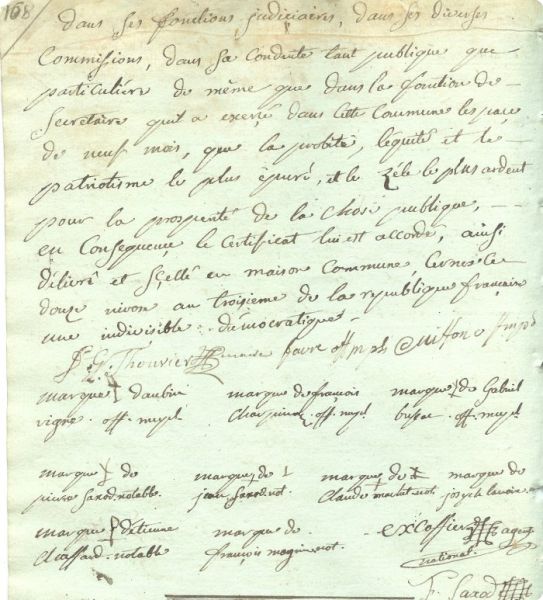 168
dans ses fonctions judiciaires, dans ses diverses
Commissions, dans sa conduite tant publique que
particuliére de même que dans la fonction de
Secretaire qu'il a exercé dans cette Commune l'espace
de neuf mois, que la probité, l'équité et le
patriotisme le plus épuré, et le zéle le plus ardent
pour la prosperité de la chose publique,
en Consequence le Certificat lui est accordé, ainsi
délivré et scellé en maison Commune, Cernex le
douze nivose au troisieme de la republique françoise
une indivisible démocratique
Thouvier favre off mpl
marque d'aubin marque de françois marque de Gabriel
vigne off. mupl off. mupl off. mupl
marque de marque de marque de marque de
pierre Saxod notable jean Saxod not. Claude not joseph
marque d'étienne marque de excoffier agent
Chaffard notable françois not national
F. Saxod